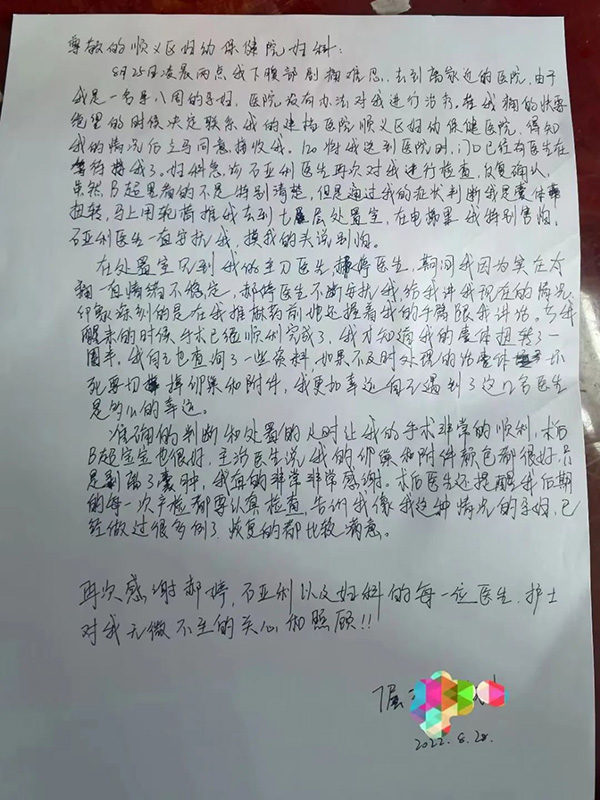 尊敬的顺义区妇幼保健院妇科:
8月25日凌晨两点我下腹部剧痛难忍,去到离家近的医院,由于
我是一名孕八周的孕妇,医院没有办法对我进行治疗。在我痛的快要
绝望的时候决定联系我的建档医院顺义区妇幼保健医院,得知
我的情况后立马同意接收我。120将我送到医院时,门口已经有医生在
等待我了。妇科急诊石亚利医生再次对我进行检查,反复确认,
虽然B超里看的不是特别清楚,但是通过我的症状判断我是囊体
扭转,马上用轮椅推我去到七层处置室,在电梯里我特别害怕,
石亚利医生一直安抚我,摸我的头说别怕。
在处置室见到我的主刀医生郝婷医生,期间我因为实在太
痛一直情绪不稳定,郝婷医生不断安抚我,给我讲我现在的情况,
印象深刻的是在我推麻药前她还握着我的手跟我讲话。在我
醒来的时候手术已经顺利完成了,我才知道我的囊体扭转了一
圈半。我自己也查询了一些资料,如果不及时处理的话囊体坏
死要切掉卵巢和附件,我更加幸运自己遇到了这几名医生
是多么的幸运。
准确的判断和处置的及时让我的手术非常的顺利,术后
B超宝宝也很好,主治医生说我的卵巢和附件颜色都很好,只
是剥除了囊肿,我真的非常非常感谢。术后医生还提醒我后期
的每一次产检都要认真检查,告诉我像我这种情况的孕妇,已
经做过很多例了,恢复的都比较满意。
再次感谢郝婷,石亚利以及妇科的每一位医生,护士
对我无微不至的关心和照顾!!
2022.8.28.